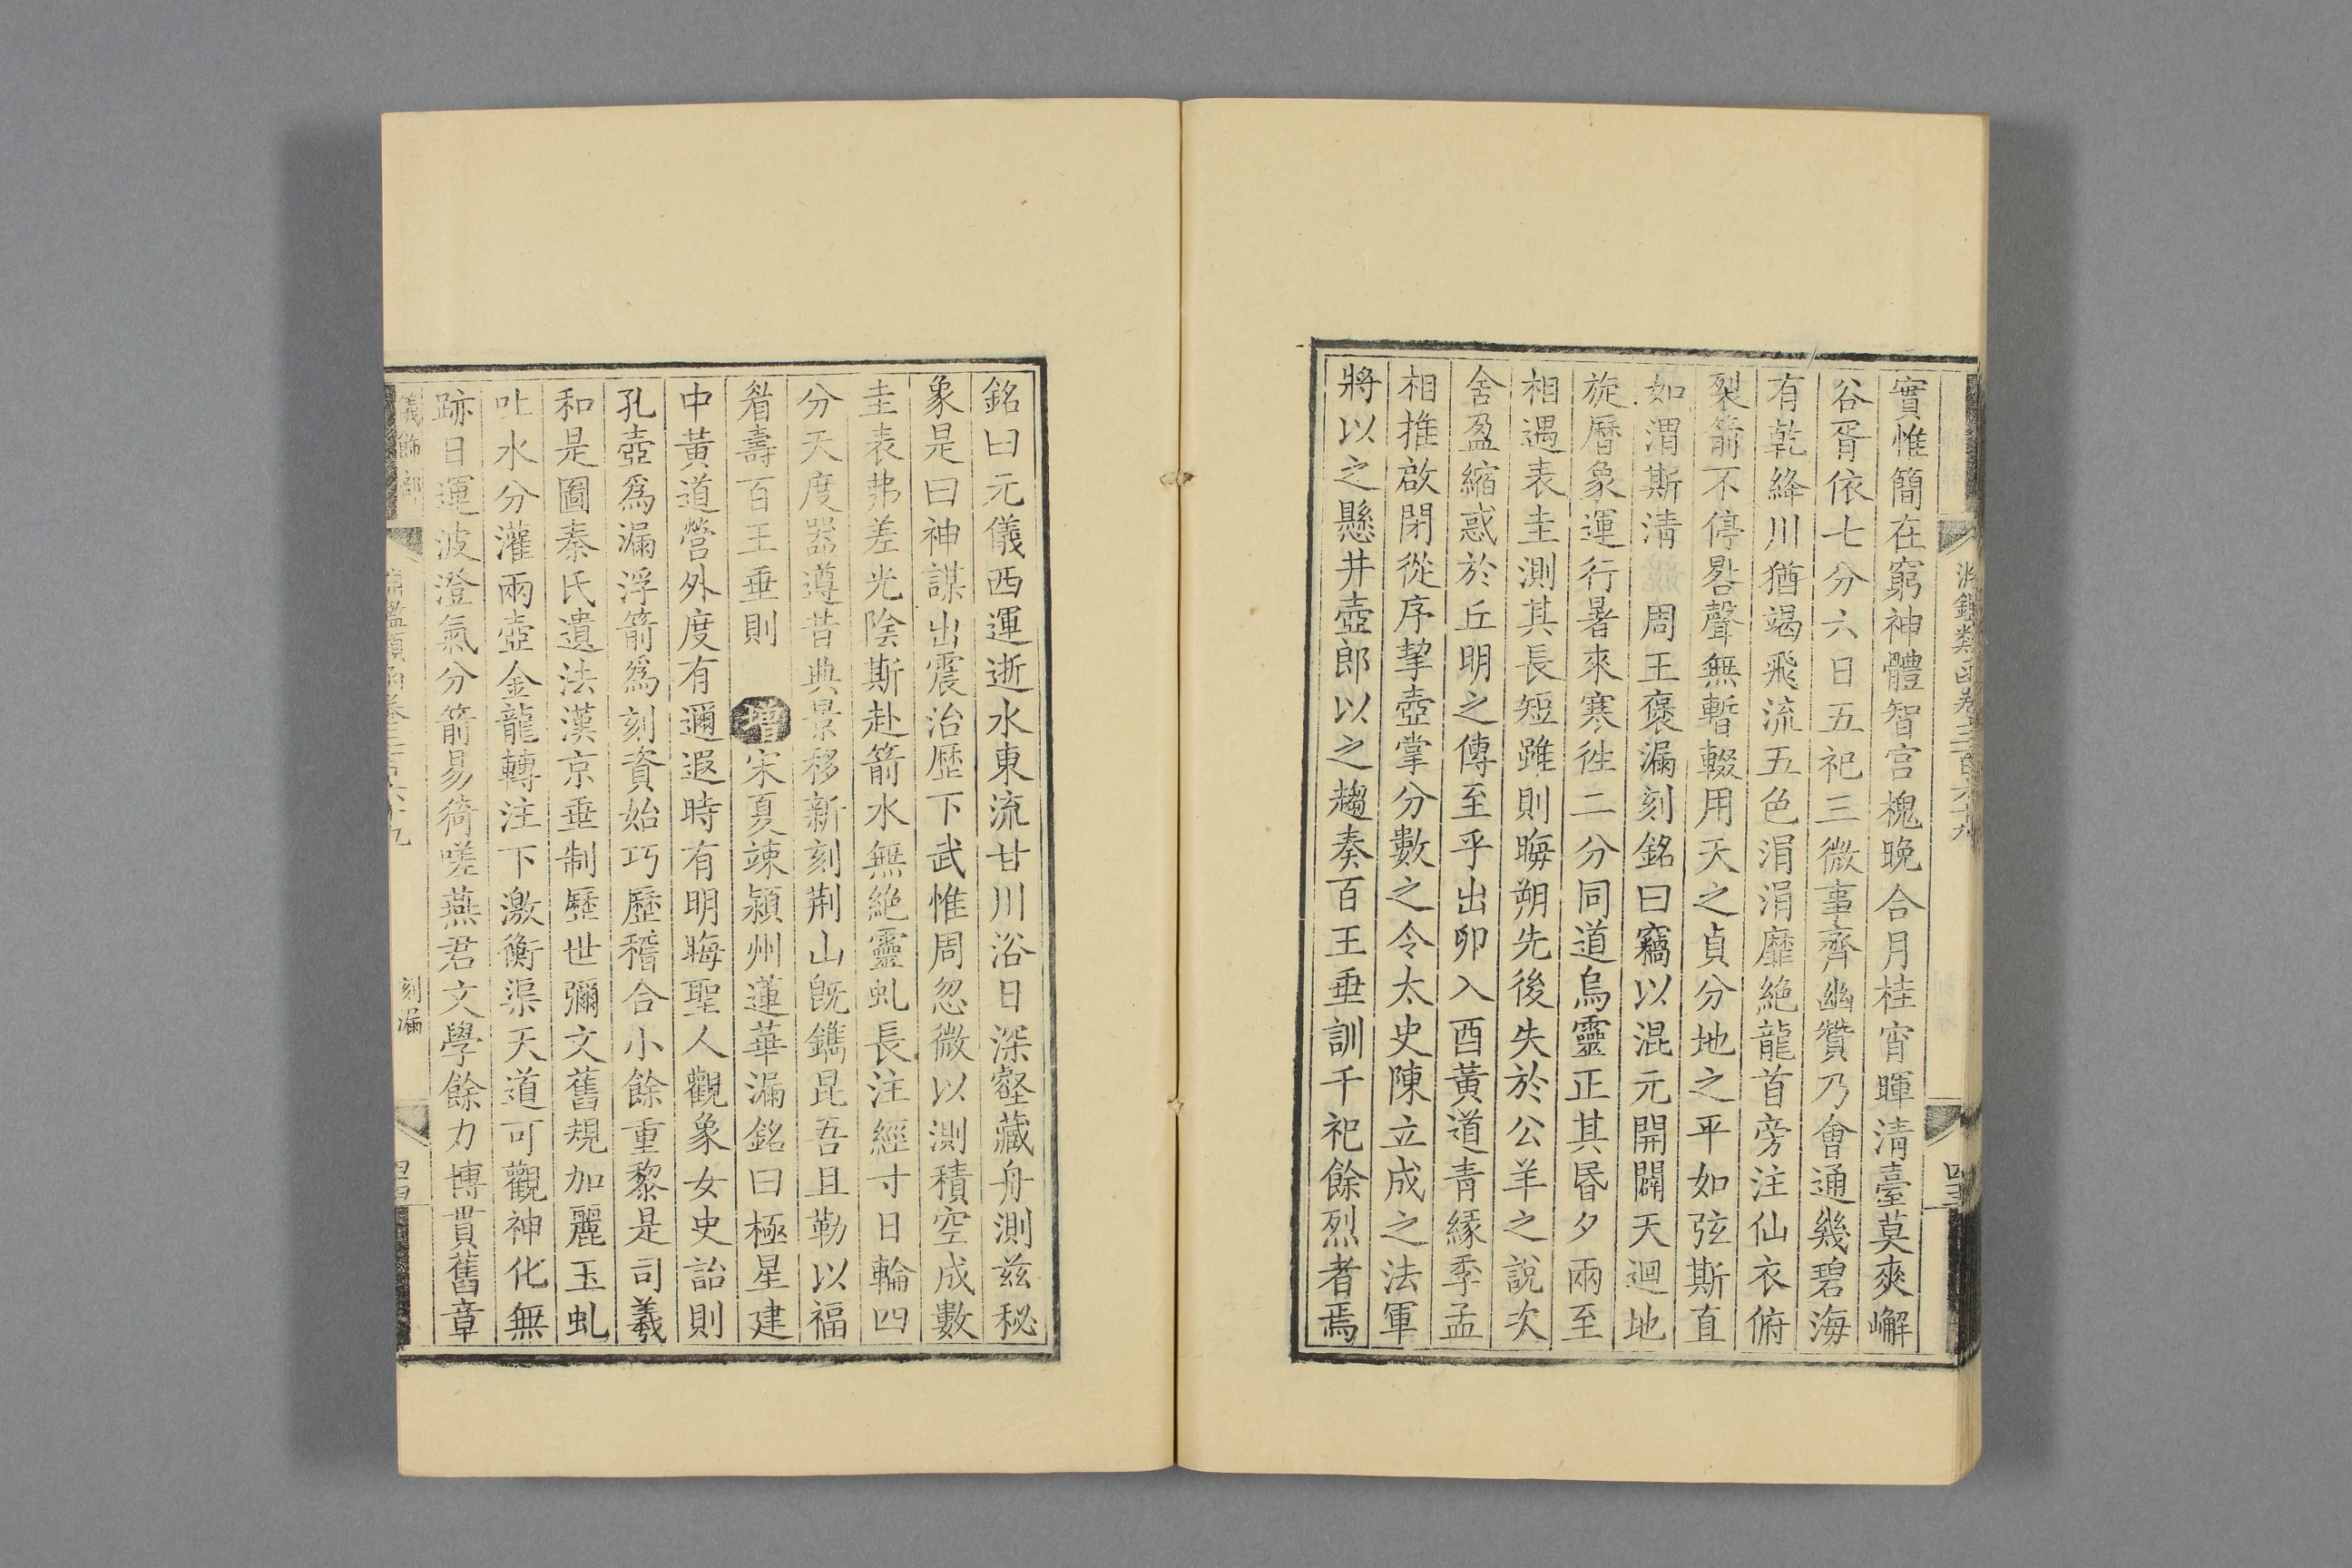 淵鑑類函卷三百六十九
四十三
實惟簡在窮神體智宫槐晚合月桂宵暉清臺莫爽嶰
谷胥依七分六日五祀三微事齊幽贊乃會通幾碧海
有乾絳川猶竭飛流五色涓涓靡絶龍首旁注仙衣俯
裂箭不停晷聲無暫輟用天之貞分地之平如弦斯直
如渭斯清 周王褒漏刻銘曰竊以混元開闢天迴地
旋曆象運行暑來寒徃二分同道烏靈正其昬夕兩至
相遇表圭測其長短雖則晦朔先後失於公羊之說次
舍盈縮惑於丘明之傳至乎出卯入酉黄道青緣季孟
相推啟閉從序挈壺掌分數之令太史陳立成之法軍
將以之懸井壺郎以之趨奏百王垂訓千祀餘烈者焉
銘曰元儀西運逝水東流甘川浴日深壑藏舟測兹秘
象是曰神謀出震治歴下武惟周忽微以測積空成數
圭表弗差光陰斯赴箭水無絶靈虬長注經寸日輪四
分天度器遵昔典景移新刻荆山旣鐫昆吾且勒以福
眉壽百王垂則 增宋夏竦潁州蓮華漏銘曰極星建
中黄道營外度有邇遐時有明晦聖人觀象女史詒則
孔壺爲漏浮箭爲刻資始巧歷稽合小餘重黎是司羲
和是圖秦氏遺法漢京垂制歷世彌文舊規加麗玉虬
吐水分灌兩壺金龍轉注下激衡渠天道可觀神化無
跡日運波澄氣分箭易猗嗟燕君文學餘力博貫舊章
儀飾部
淵鑑類函卷三百六十九
刻漏
四十四